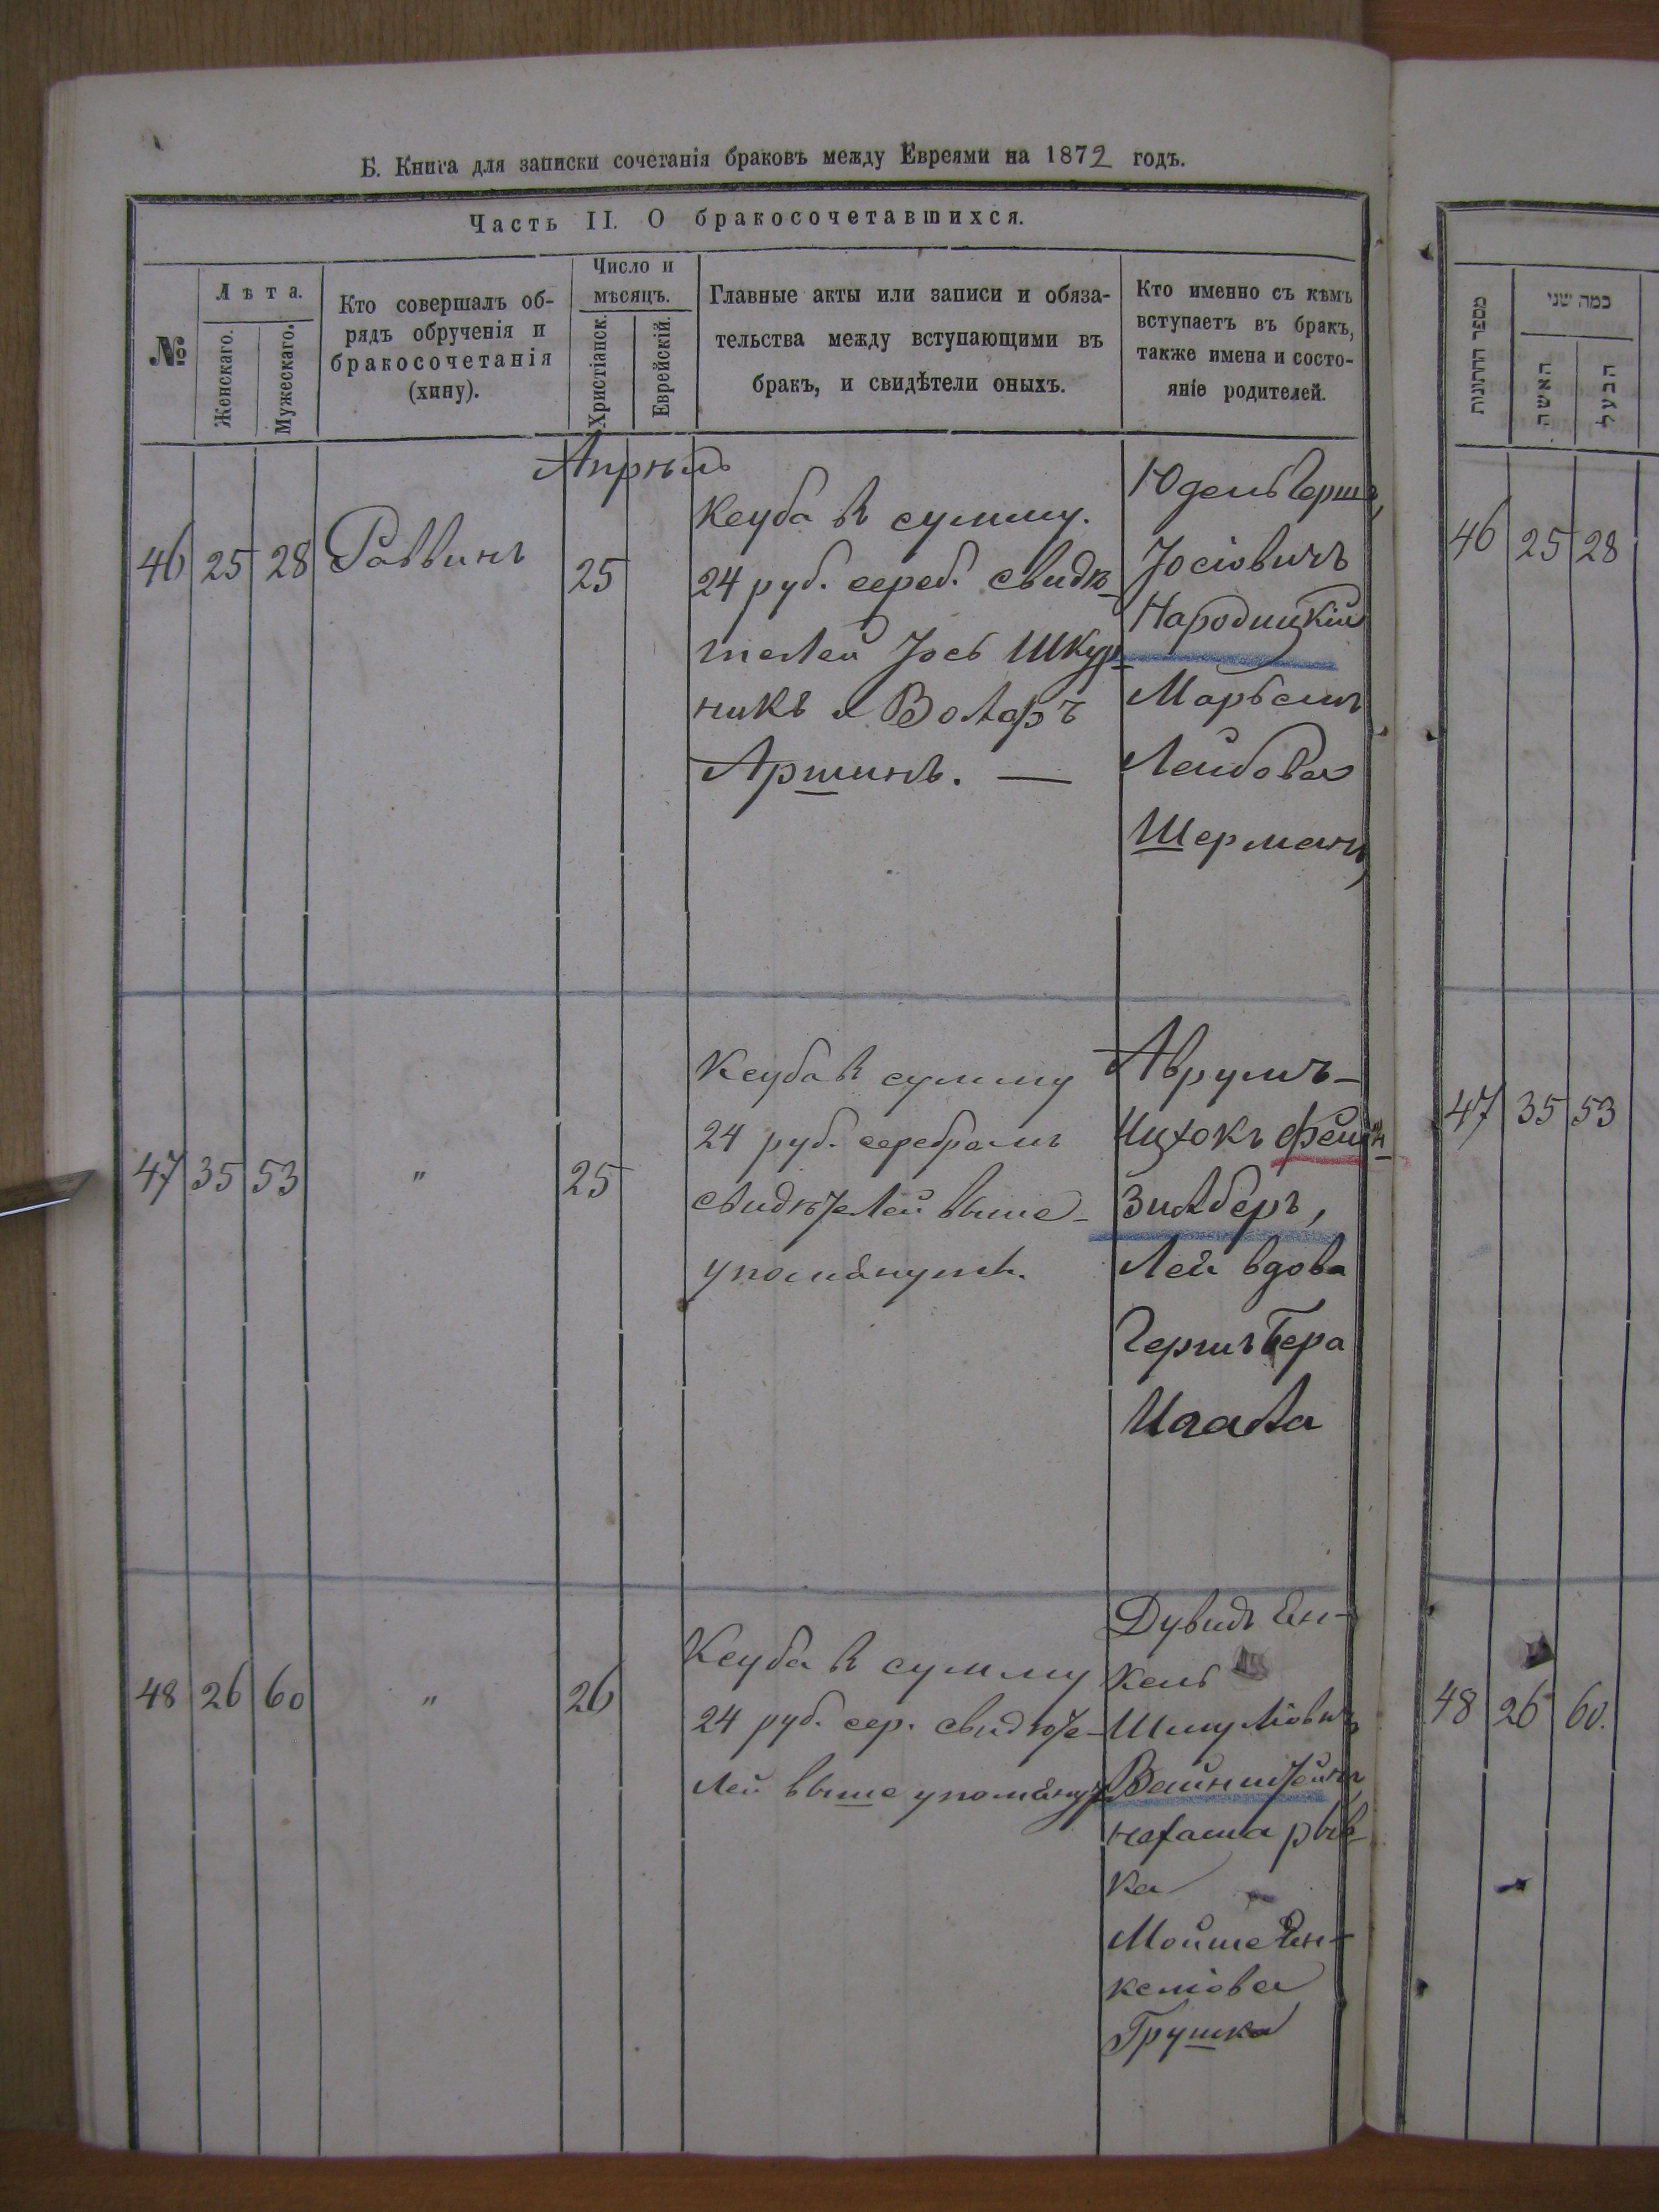 Б. Книга для записки сочетанія браковъ между Евреями на 1872 годъ.
Часть II. О бракосочетавшихся.
№
Лѣта.
Женскаго.
Мужескаго.
Кто совершалъ об-
рядъ обрученія и
бракосочетанія
(хипу).
Число и
мѣсяцъ.
Христіанск.
Еврейскій.
Главные акты или записи и обяза-
тельства между вступающими въ
бракъ, и свидѣтели оныхъ.
Кто именно съ кѣмъ
вступаетъ въ бракъ,
также имена и состо-
яніе родителей.
Апрѣль
46 25 28 Раввинъ 25
Ксуба в сумму.
24 руб. сереб. свидѣ-
телей Іось Шкур-
никъ и Волфъ
Аршинъ. —
Юдель Герш,
Іосіовичъ
Народицкій
Марьемъ
Лейбова
Шерманъ,
47 35 53 " 25
Ксуба в сумму
24 руб. серебромъ
свидѣтелей выше-
упомянут.
Аврумъ-
Ицхокъ Фейн-
зилберъ,
Лея вдова
Гершъ Бера
48 26 60 " 26
Ксуба в сумму
24 руб. сер. свидѣте-
лей выше упомянут
Дувидъ Ен-
кель
Шмулiовичъ
Вайнштейнъ,
Нехама рыв-
ка
Мойше Ен-
келiова
Грушка
מספר החתונות
כמה שני
האשה
הבעל
46 25 28
47 35 53
48 26 60.